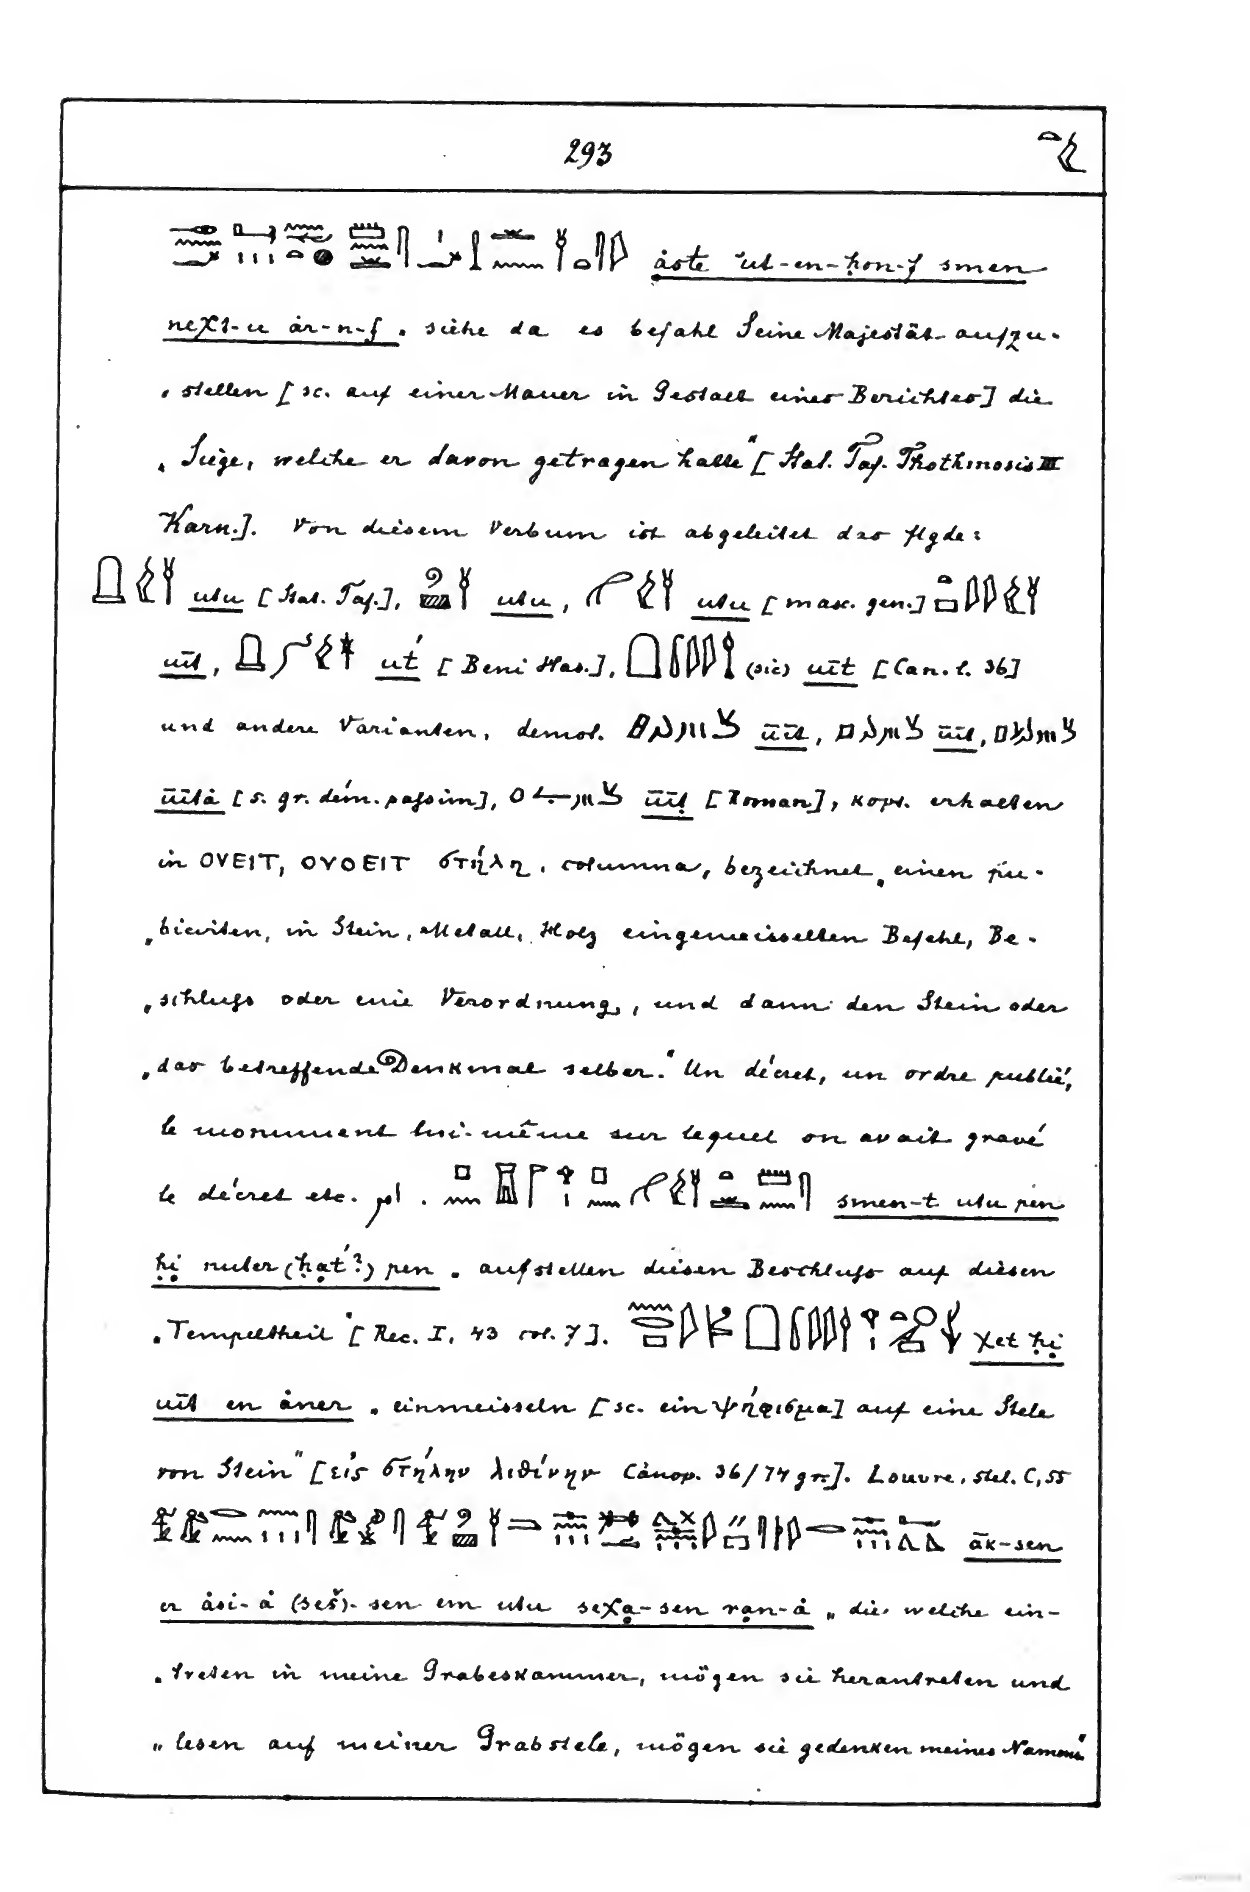 293
åste ut-en-ḥon-f smen
neχt-u år-n-f „ siehe da es befahl Seine Majestät aufzu-
„ stellen [sc. auf einer Mauer in Gestalt eines Berichtes] die
„ Siege, welche er davon getragen hatte“ [Stat. Taf. Thothmosis III
Karn.]. Von diesem Verbum ist abgeleitet das flgde:
utu [Stat. Taf.], utu, utu [masc. gen.]
uīt, ut́ [Beni Has.], (sic) uīt [Can. l. 36]
und andere Varianten, demot. ūīt, ūīt,
ūītå [s. gr. dém. passim], ūīṭ [Roman], kopt. erhalten
in ΟΥΕΙΤ, ΟΥΟΕΙΤ στήλη, columna, bezeichnet „ einen pu-
„ blicirten, in Stein, Metall, Holz eingemeisselten Befehl, Be-
„ schluss oder eine Verordnung, und dann den Stein oder
„ das betreffende Denkmal selber.“ Un décret, un ordre publié,
le monument lui-même sur lequel on avait gravé
le décret etc. pl. smen-t utu pen
ḥi̩ nuter (ḥa̩t́?) pen „ aufstellen diesen Beschluss auf diesen
„ Tempeltheil“ [Rec. I, 43 col. 7]. χet ḥi̩
uīt en åner „ einmeisseln [sc. ein ψήφισμα] auf eine Stele
von Stein“ [εἰς στήλην λιθίνην Canop. 36/74 gr.]. Louvre, stel. C, 55
āk-sen
er åsi-å (seš)-sen em utu seχa̩-sen ra̩n-å „ die welche ein-
„ treten in meine Grabeskammer, mögen sie herantreten und
„ lesen auf meiner Grabstele, mögen sie gedenken meines Namens“